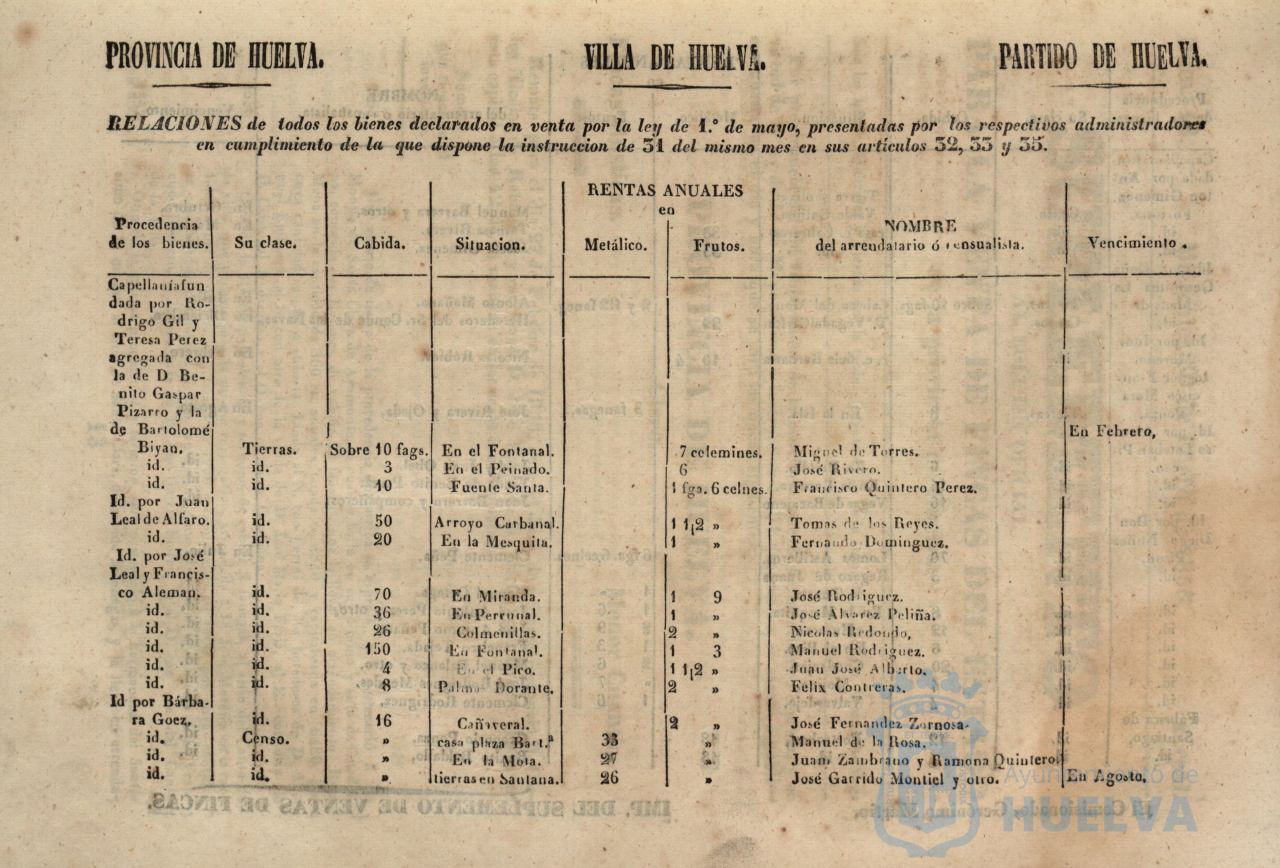 PROVINCIA DE HUELVA. VILLA DE HUELVA. PARTIDO DE HUELVA.
RELACIONES de todos los bienes declarados en venta por la ley de 1.º de mayo, presentadas por los respectivos administradores
en cumplimiento de la que dispone la instruccion de 31 del mismo mes en sus articulos 32, 33 y 35.
RENTAS ANUALES
en
Procedencia NOMBRE
de los bienes. Su clase. Cabida. Situacion. Metálico. Frutos. del arrendatario ó censualista. Vencimiento.
Capellanía fun
dada por Ro-
drigo Gil y
Teresa Perez
agregada con
la de D Be-
nito Gaspar
Pizarro y la
de Bartolomé En Febrero,
Biyan. Tierras. Sobre 10 fags. En el Fontanal. 7 celemines. Miguel de Torres.
id. id. 3 En el Peinado. 6 José Rivero.
id. id. 10 Fuente Santa. 1 fga. 6 celnes. Francisco Quintero Perez.
Id. por Juan
Leal de Alfaro. id. 50 Arroyo Carbanal. 1 1¡2 » Tomas de los Reyes.
id. id. 20 En la Mesquita. 1 » Fernando Dominguez.
Id. por José
Leal y Francis-
co Aleman. id. 70 En Miranda. 1 9 José Rodriguez.
id. id. 36 En Perrunal. 1 » José Alvarez Peliña.
id. id. 26 Colmenillas. 2 » Nicolas Redondo,
id. id. 150 En Fontanal. 1 3 Manuel Rodriguez.
id. id. 4 En el Pico. 1 1¡2 » Juan José Alberto.
id. id. 8 Palma Dorante. 2 » Felix Contreras.
Id por Bárba-
ra Goez. id. 16 Cañaveral. 2 » José Fernandez Zornosa
id. Censo. » casa plaza Bart.ª 33 » Manuel de la Rosa.
id. id. » En la Mota. 27 » Juan Zambrano y Ramona Quintero.
id. id. » tierras en Santana. 26 » José Garrido Montiel y otro. En Agosto,
Ayuntamiento de
HUELVA